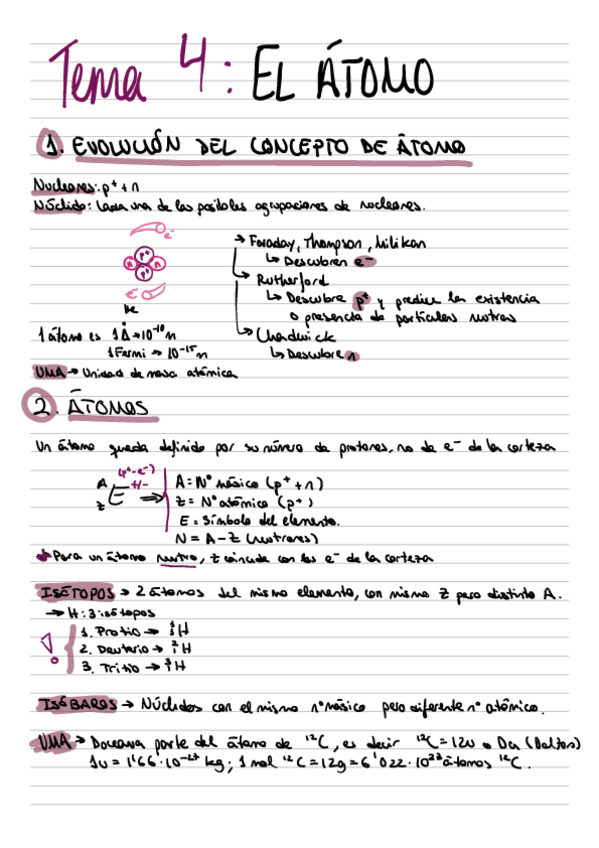 Tema 4: EL ÁTOMO
1. EVOLUCIÓN DEL CONCEPTO DE ÁTOMO
Nucleones: p⁺ + n
Núclido: Cada una de las posibles agrupaciones de nucleones.
e⁻
p⁺
n n
p⁺
e⁻
He
→ Faraday, Thompson, Milikan
↳ Descubren e⁻
↳ Rutherford
↳ Descubre p⁺ y predice la existencia
o presencia de partículas neutras
↳ Chadwick
↳ Descubre n
1 átomo es 1Å → 10⁻¹⁰ m
1 Fermi → 10⁻¹⁵ m
UMA → Unidad de masa atómica
2. ÁTOMOS
Un átomo queda definido por su número de protones, no de e⁻ de la corteza
(p⁺-e⁻)
A E +/-
Z
A = Nº másico (p⁺ + n)
Z = Nº atómico (p⁺)
E = Símbolo del elemento.
N = A - Z (neutrones)
Para un átomo neutro, Z coincide con los e⁻ de la corteza
ISÓTOPOS → 2 átomos del mismo elemento, con mismo Z pero distinto A.
→ H: 3 isótopos
1. Protio → ¹₁H
2. Deuterio → ²₁H
3. Tritio → ³₁H
ISÓBAROS → Núclidos con el mismo nº másico pero diferente nº atómico.
UMA → Doceava parte del átomo de ¹²C, es decir ¹²C = 12u o Da (Dalton)
1u = 1'66·10⁻²⁷ kg; 1 mol ¹²C = 12g = 6'022·10²³ átomos ¹²C.